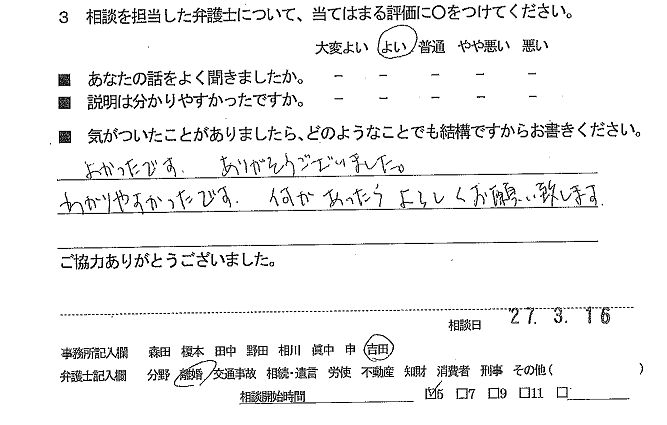 3 相談を担当した弁護士について、当てはまる評価に○をつけてください。
大変よい よい 普通 やや悪い 悪い
■ あなたの話をよく聞きましたか。 － － － － －
■ 説明は分かりやすかったですか。 － － － － －
■ 気がついたことがありましたら、どのようなことでも結構ですからお書きください。
よかったです. ありがそうございました。
わかりやすかったです. 何かあったらよろしくお願い致します.
ご協力ありがとうございました。
相談日 27. 3. 16
事務所記入欄 森田 榎本 田中 野田 相川 眞中 申 吉田
弁護士記入欄 分野 離婚 交通事故 相続・遺言 労使 不動産 知財 消費者 刑事 その他( )
相談開始時間 ☑5 □7 □9 □11 □